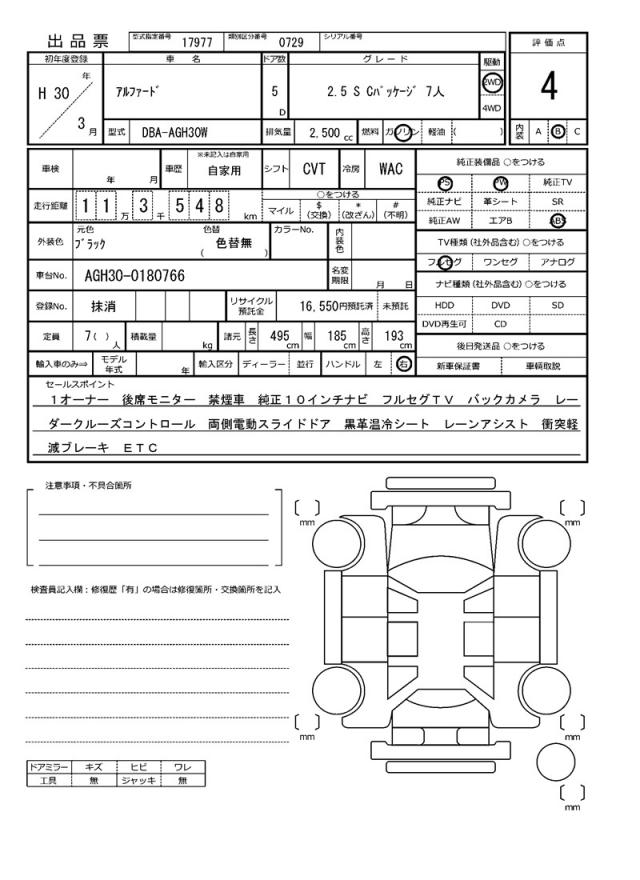 出品票 型式指定番号 17977 類別区分番号 0729 シリアル番号
初年度登録 車名 ドア数 グレード 駆動 評価点
H 30 年 3 月 アルファード 5 D 2.5 S Cパッケージ 7人 2WD 4WD 4
型式 DBA-AGH30W 排気量 2,500 cc 燃料 ガソリン 軽油 ( ) 内装 A B C
車検 年 月 車歴 ※未記入は自家用 自家用 シフト CVT 冷房 WAC 純正装備品 ○をつける
PS PW 純正TV
走行距離 1 1 万 3 千 5 4 8 km ○をつける マイル $ (交換) * (改ざん) # (不明) 純正ナビ 革シート SR
純正AW エアB ABS
外装色 元色 ブラック 色替 ( 色替無 ) カラーNo. 内装色 TV種類 (社外品含む) ○をつける
フルセグ ワンセグ アナログ
車台No. AGH30-0180766 名変期限 月 日 ナビ種類 (社外品含む) ○をつける
登録No. 抹消 リサイクル預託金 16,550円預託済 未預託 HDD DVD SD
DVD再生可 CD
定員 7( ) 人 積載量 kg 諸元 長さ 495 cm 幅 185 cm 高さ 193 cm 後日発送品 ○をつける
輸入車のみ⇒ モデル年式 年 輸入区分 ディーラー 並行 ハンドル 左 右 新車保証書 車輌取説
セールスポイント
1オーナー 後席モニター 禁煙車 純正10インチナビ フルセグTV バックカメラ レー
ダークルーズコントロール 両側電動スライドドア 黒革温冷シート レーンアシスト 衝突軽
減ブレーキ ETC
注意事項・不具合箇所
検査員記入欄:修復歴「有」の場合は修復箇所・交換箇所を記入
[ ] mm [ ] mm
[ ] mm [ ] mm
[ ] mm
ドアミラー キズ ヒビ ワレ
工具 無 ジャッキ 無